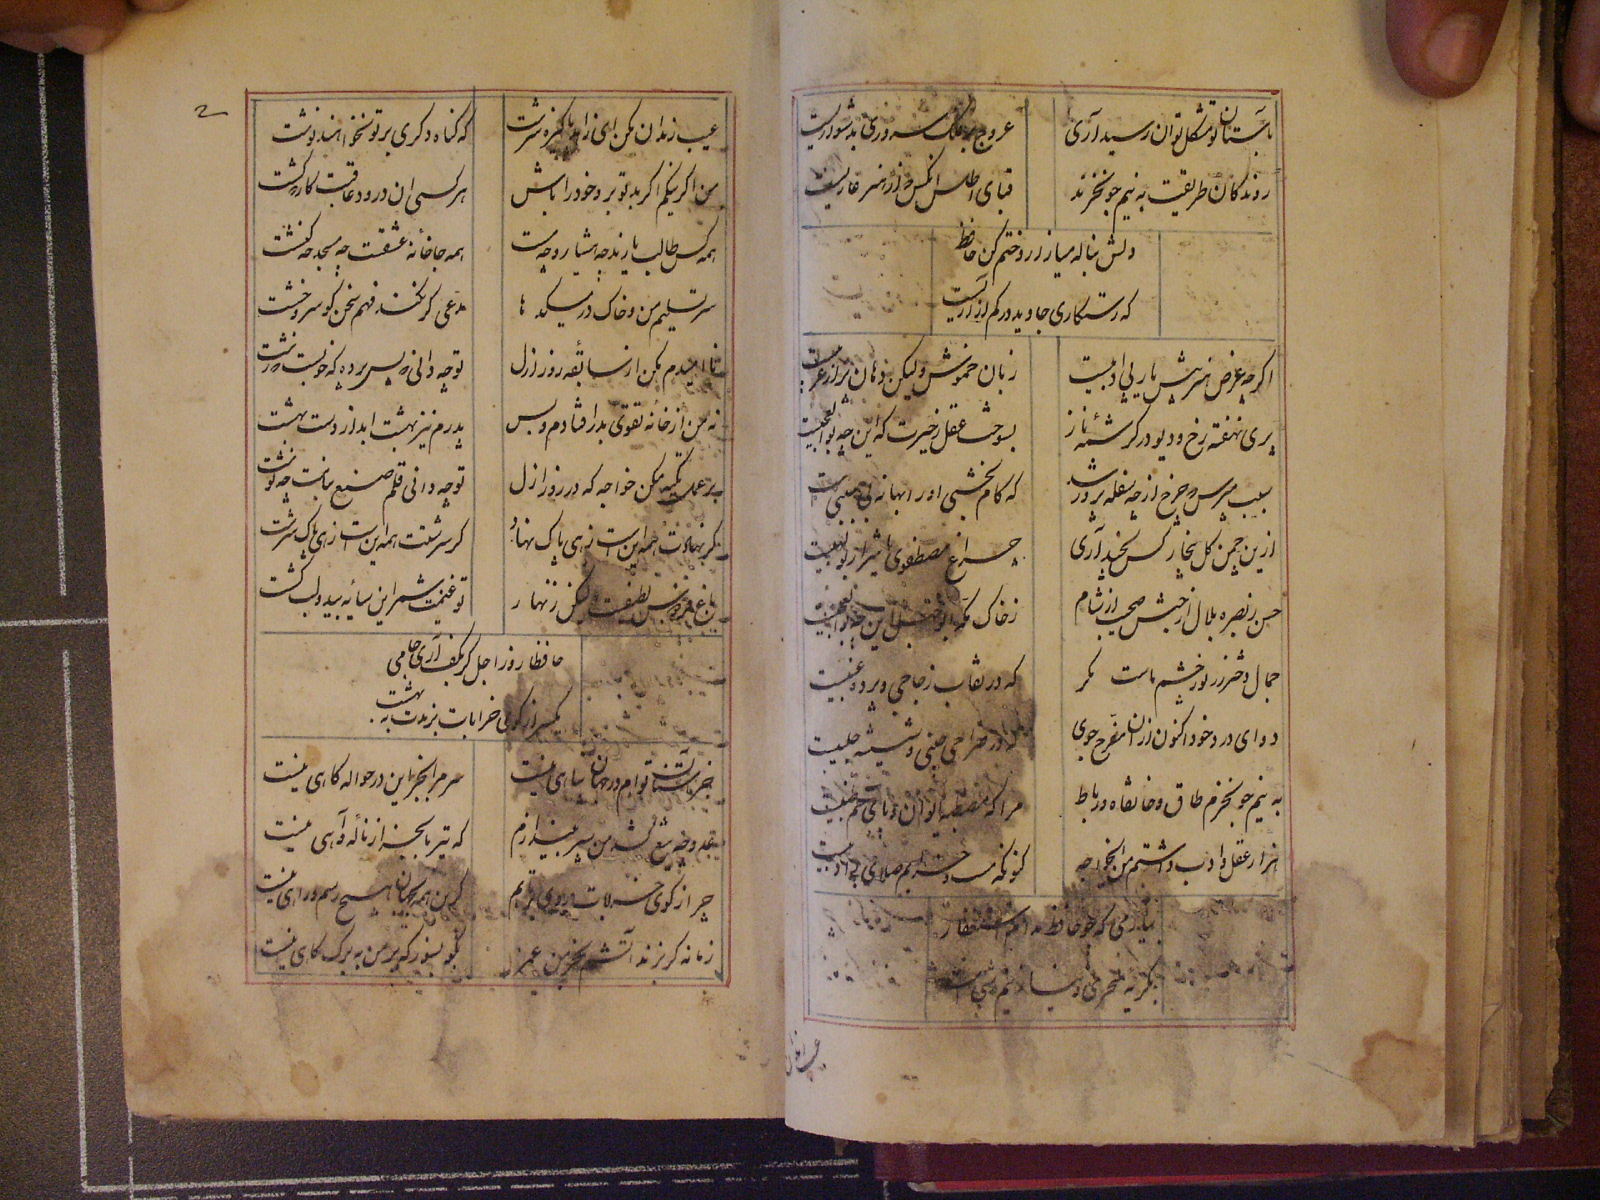 بآستان تو مشکل توان رسید آری عروج بر فلک سروری بدشواریست
روندکان طریقت به نیم جو نخرند قبای اطلس آنکس که از هنر عاریست
دلش بناله میازار و ختم کن حافظ
که رستکاری جاوید در کم آزاریست
اکرچه عرض هنر پیش یار بی ادبیست زبان خموش ولیکن دهان پر از عربیست
پری نهفته رخ و دیو در کرشمه ناز بسوخت عقل ز حیرت که این چه بوالعجبیست
سبب مپرس که چرخ از چه سفله پرور شد که کام بخشی او را بهانه بی سببی است
ازین چمن کل بیخار کس نچید آری چراغ مصطفوی با شرار بولهبیست
حسن ز بصره بلال از حبش صهیب از شام ز خاک مکه ابوجهل این چه بوالعجبیست
جمال دختر رز نور چشم ماست مکر که در نقاب زجاجی و پرده عنبیست
دوای درد خود اکنون ازان مفرح جوی که در صراحی چینی و شیشه حلبیست
به نیم جو نخرم طاق و خانقاه و رباط مرا که مصطبه ایوان و پای خم طنبیست
هزار عقل و ادب داشتم من ایخواجه کنونکه مست و خرابم صلای بی ادبیست
بیار می که چو حافظ مدام استغفار
بکریه سحری و نیاز نیم شبیست
عیب رندان
عیب رندان مکن ای زاهد پاکیزه سرشت که کناه دکری بر تو نخواهند نوشت
من اکر نیکم اکر بد تو برو خود را باش هر کسی آن درود عاقبت کار که کشت
همه کس طالب یارند چه هشیار و چه مست همه جا خانه عشقست چه مسجد چه کنشت
سر تسلیم من و خاک در میکدها مدعی کر نکند فهم سخن کو سر و خشت
نا امیدم مکن از سابقه روز ازل تو چه دانی که پس پرده که خوبست که زشت
نه من از خانه تقوی بدر افتادم و بس پدرم نیز بهشت ابد از دست بهشت
بر عمل تکیه مکن خواجه که در روز ازل تو چه دانی قلم صنع بنامت چه نوشت
کر نهادت همه این است زهی پاک نهاد کر سرشتت همه این است زهی پاک سرشت
باغ فردوس لطیفست ولیکن زنهار تو غنیمت شمر این سایه بید و لب کشت
حافظا روز اجل کر بکف آری جامی
یکسر از کوی خرابات برندت به بهشت
جز آستان توام در جهان پناهی نیست سر مرا بجز این در حواله کاهی نیست
عدو چو تیغ کشد من سپر بیندازم که تیر ما بجز از ناله و آهی نیست
چرا ز کوی خرابات روی برتابم کزین بهم بجهان هیچ رسم و راهی نیست
زمانه کر بزند آتشم بخرمن عمر بکو بسوز که بر من به برک کاهی نیست